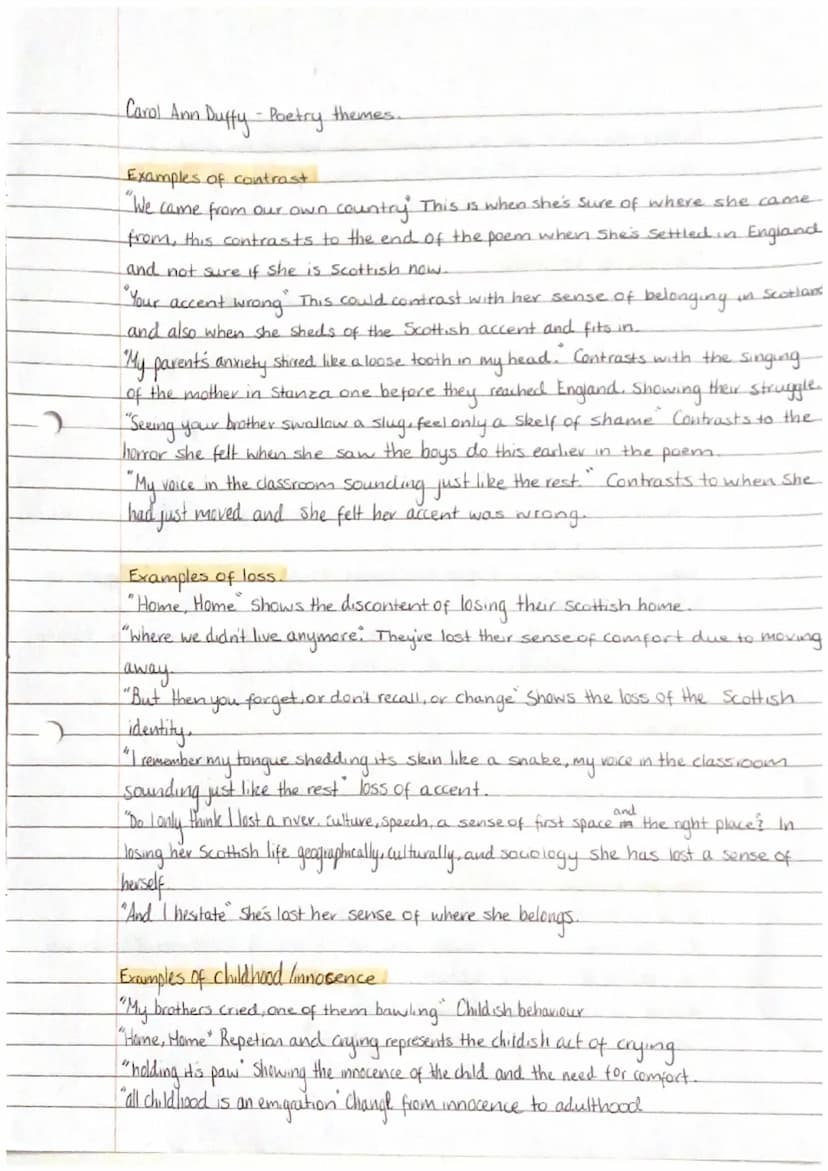 Carol Ann Duffy - Poetry themes.
Examples of contrast
"We came from our own country" This is when she's sure of where she came
from, this contrasts to the end of the poem when she's settled in England
and not sure if she is Scottish now.
"Your accent wrong" This could contrast with her sense of belonging in Scotland
and also when she sheds of the Scottish accent and fits in.
"My parent's anxiety stirred like a loose tooth in my head." Contrasts with the singing
of the mother in Stanza one before they reached England. Showing their struggle.
"Seeing your brother swallow a slug, feel only a skelf of shame" Contrasts to the
horror she felt when she saw the boys do this earlier in the poem.
"My voice in the classroom sounding just like the rest." Contrasts to when she
had just moved and she felt her accent was wrong.
Examples of loss.
"Home, Home" Shows the discontent of losing their scottish home.
"Where we didn't live anymore." They've lost their sense of comfort due to moving
away.
"But then you forget, or don't recall, or change" Shows the loss of the Scottish
identity.
"I remember my tongue shedding its skin like a snake, my voice in the classroom
sounding just like the rest" loss of accent.
"Do I only think I lost a river, culture, speech, a sense of first space and the right place? In
losing her Scottish life geographically, culturally, and sociology she has lost a sense of
herself.
"And I hesitate" She's lost her sense of where she belongs.
Examples of childhood/innocence
"My brothers cried, one of them bawling" Childish behaviour
"Home, Home" Repetion and crying represents the childish act of crying
"holding its paw" Showing the innocence of the child and the need for comfort.
"all childhood is an emigration" Change from innocence to adulthood